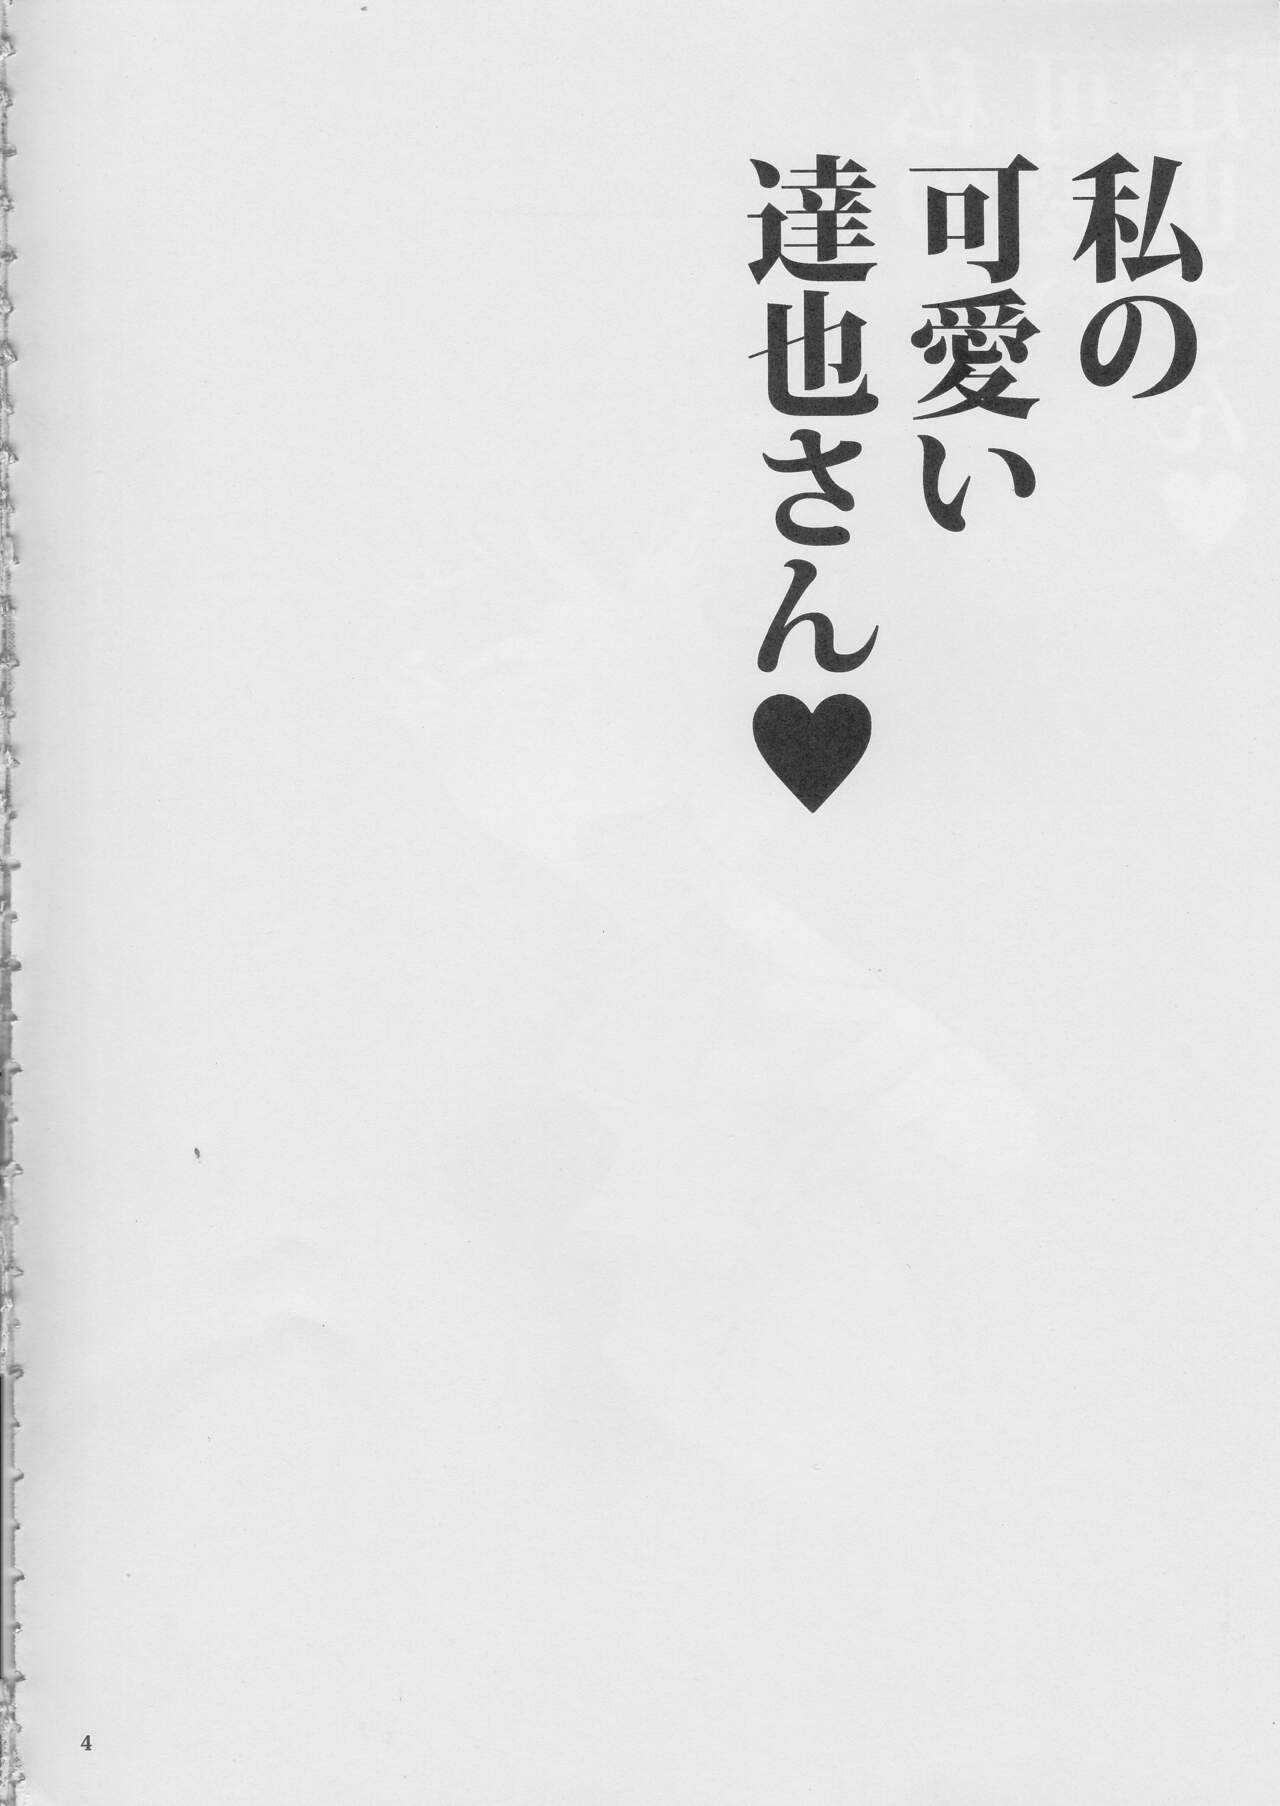 私の
可愛い
達也さん♥
4